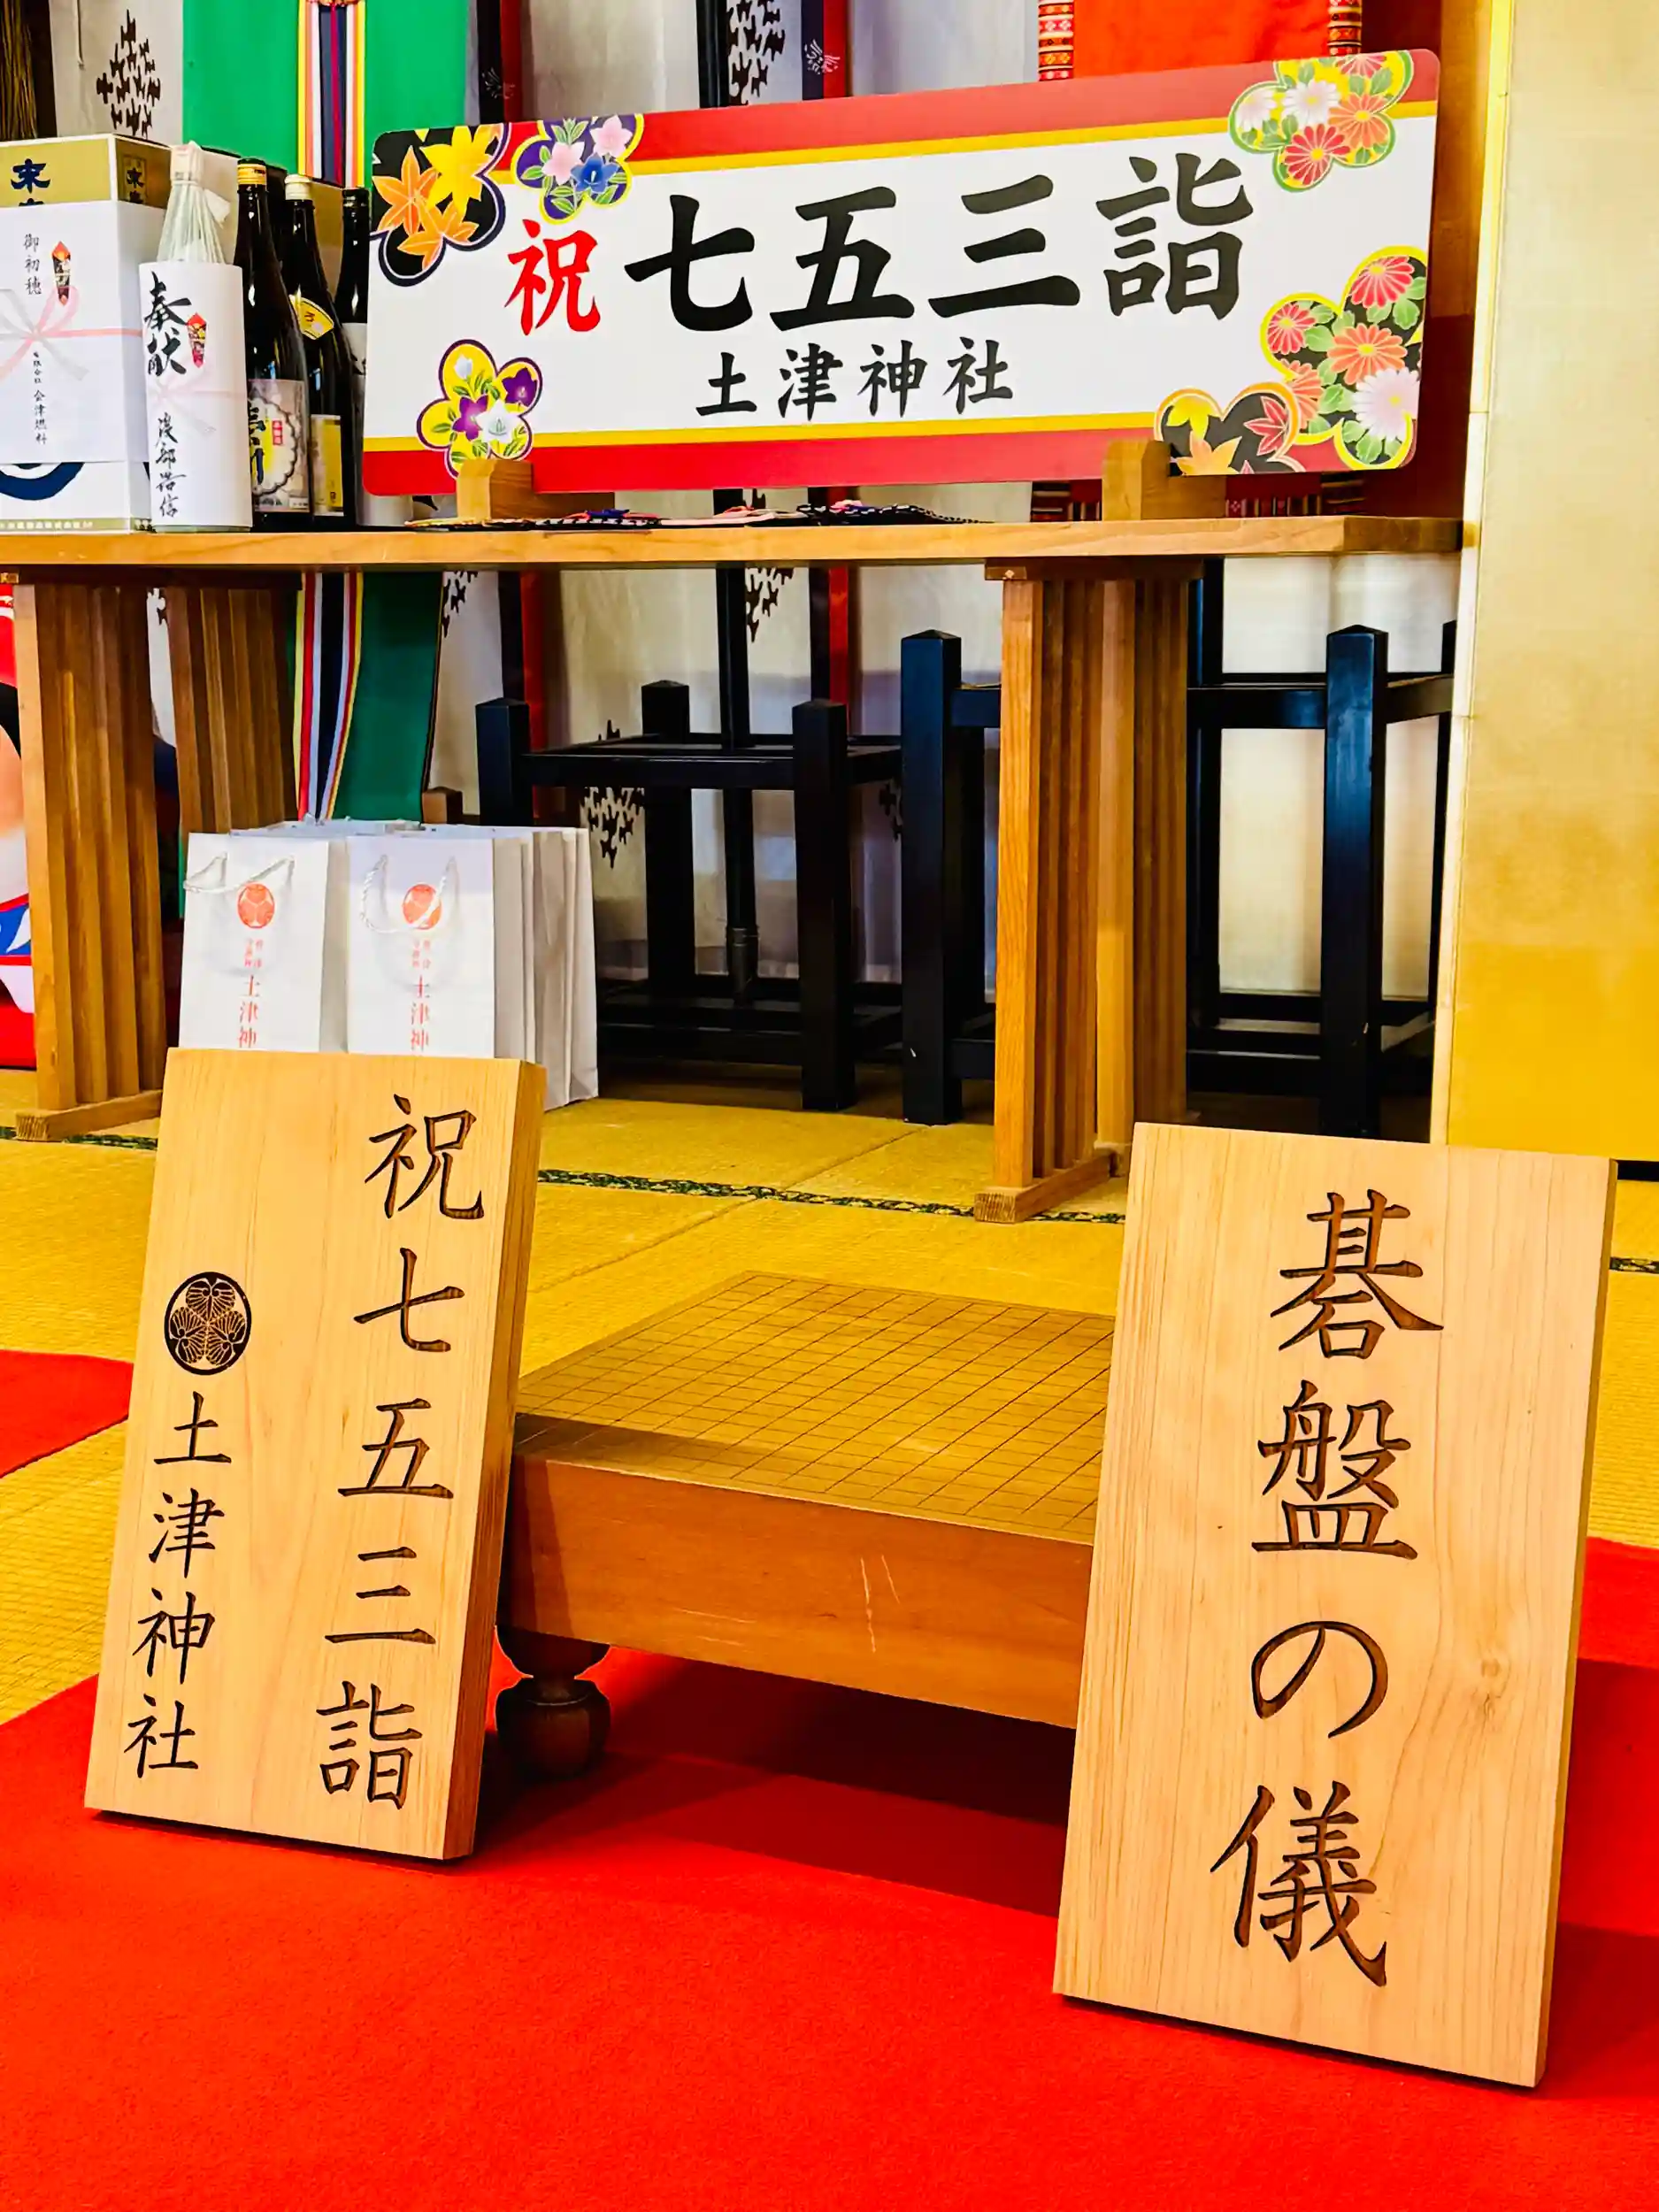 祝 七五三詣
土津神社
末
御初穂
有限会社 会津燃料
奉献
土津神
土津神
祝七五三詣
土津神社
碁盤の儀